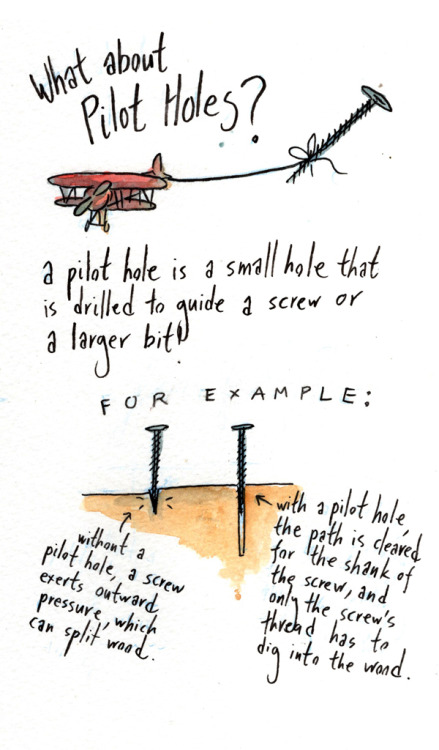 What about
Pilot Holes?
a pilot hole is a small hole that
is drilled to guide a screw or
a larger bit!
FOR EXAMPLE:
without a
pilot hole, a screw
exerts outward
pressure, which
can split wood.
with a pilot hole,
the path is cleared
for the shank of
the screw, and
only the screw's
thread has to
dig into the wood.